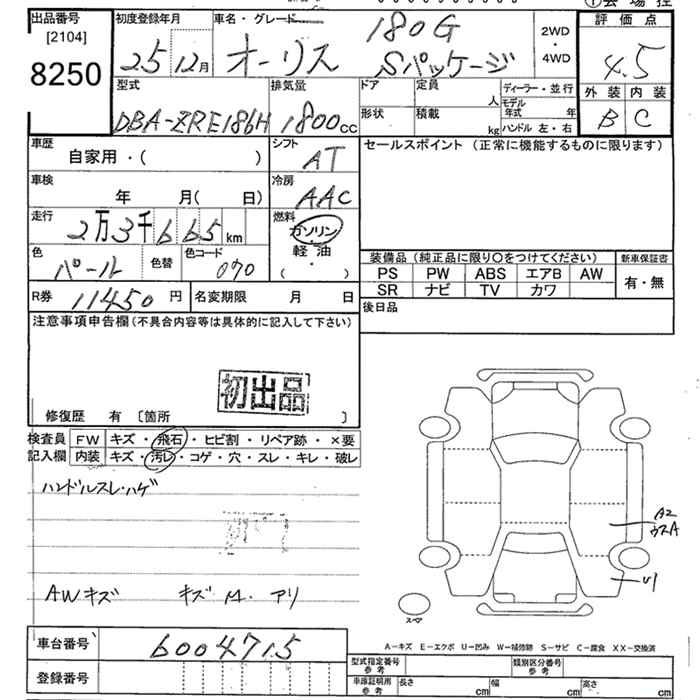 出品番号 初度登録年月 車名・グレード ① 会場控
[2104]
8250
25 12月 オーリス 180G Sパッケージ
2WD・4WD
評価点
4.5
外装 内装
B C
型式 排気量 ドア 定員 人 ディーラー・並行
DBA-ZRE186H 1800cc 形状 積載 kg モデル年式 年
ハンドル 左・右
車歴 シフト セールスポイント (正常に機能するものに限ります)
自家用・( ) AT
車検 冷房
年 月( 日) AAC
走行 燃料
2万3千665km ガソリン
軽油
( ・ )
色 色替 色コード
パール 070
装備品 (純正品に限り○をつけてください) 新車保証書
PS PW ABS エアB AW 有・無
SR ナビ TV カワ
R券 11450円 名変期限 月 日
後日品
注意事項申告欄 (不具合内容等は具体的に記入して下さい)
初出品
修復歴 有 〔箇所 〕
検査員 FW キズ・飛石・ヒビ割・リペア跡・×要
記入欄 内装 キズ・汚レ・コゲ・穴・スレ・キレ・破レ
ハンドルスレ・ハゲ
A2
ウスA
U1
AWキズ キズ M. アリ
スペア
A－キズ E－エクボ U－凹み W－補修跡 S－サビ C－腐食 XX－交換済
車台番号 6004715
型式指定番号 参考 類別区分番号 参考
登録番号
車庫証明用 参考 長さ cm 幅 cm 高さ cm